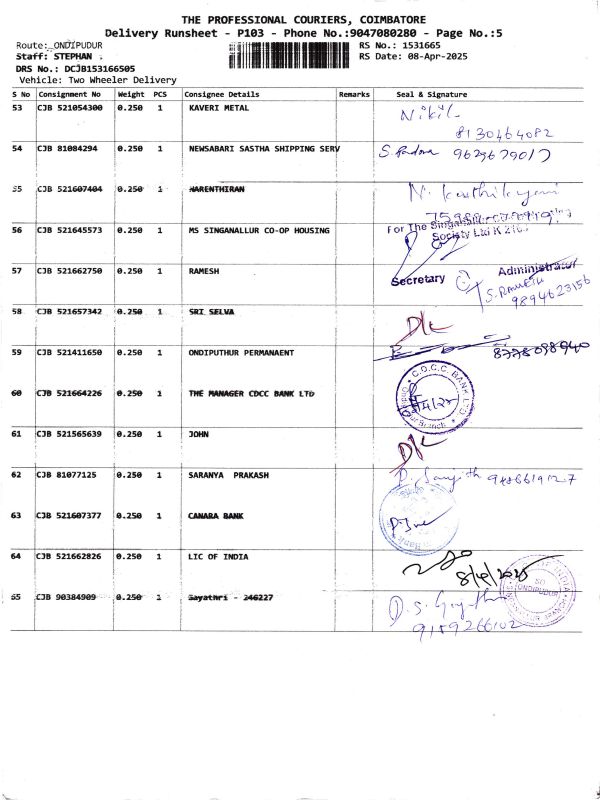 THE PROFESSIONAL COURIERS, COIMBATORE
Delivery Runsheet - P103 - Phone No.:9047080280 - Page No.:5
Route: ONDIPUDUR
RS No.: 1531665
Staff: STEPHAN .
RS Date: 08-Apr-2025
DRS No.: DCJB153166505
Vehicle: Two Wheeler Delivery
S No Consignment No Weight PCS Consignee Details Remarks Seal & Signature
53 CJB 521054300 0.250 1 KAVERI METAL
8130464082
54 CJB 81084294 0.250 1 NEWSABARI SASTHA SHIPPING SERV
9629679017
55 CJB 521607404 0.250 1 HARENTHIRAN
56 CJB 521645573 0.250 1 MS SINGANALLUR CO-OP HOUSING
For The
Society Ltd K
57 CJB 521662750 0.250 1 RAMESH
Secretary
Administrator
9894623156
58 CJB 521657342 0.250 1 SRI SELVA
D/L
59 CJB 521411650 0.250 1 ONDIPUTHUR PERMANAENT
8778098940
60 CJB 521664226 0.250 1 THE MANAGER CDCC BANK LTD
C.D.C.C. BANK LTD.
Branch
61 CJB 521565639 0.250 1 JOHN
D/L
62 CJB 81077125 0.250 1 SARANYA PRAKASH
63 CJB 521607377 0.250 1 CANARA BANK
64 CJB 521662826 0.250 1 LIC OF INDIA
8/4/2025
SO
ONDIPUDUR
65 CJB 90384909 0.250 1 Gayathri - 246227
9159266102